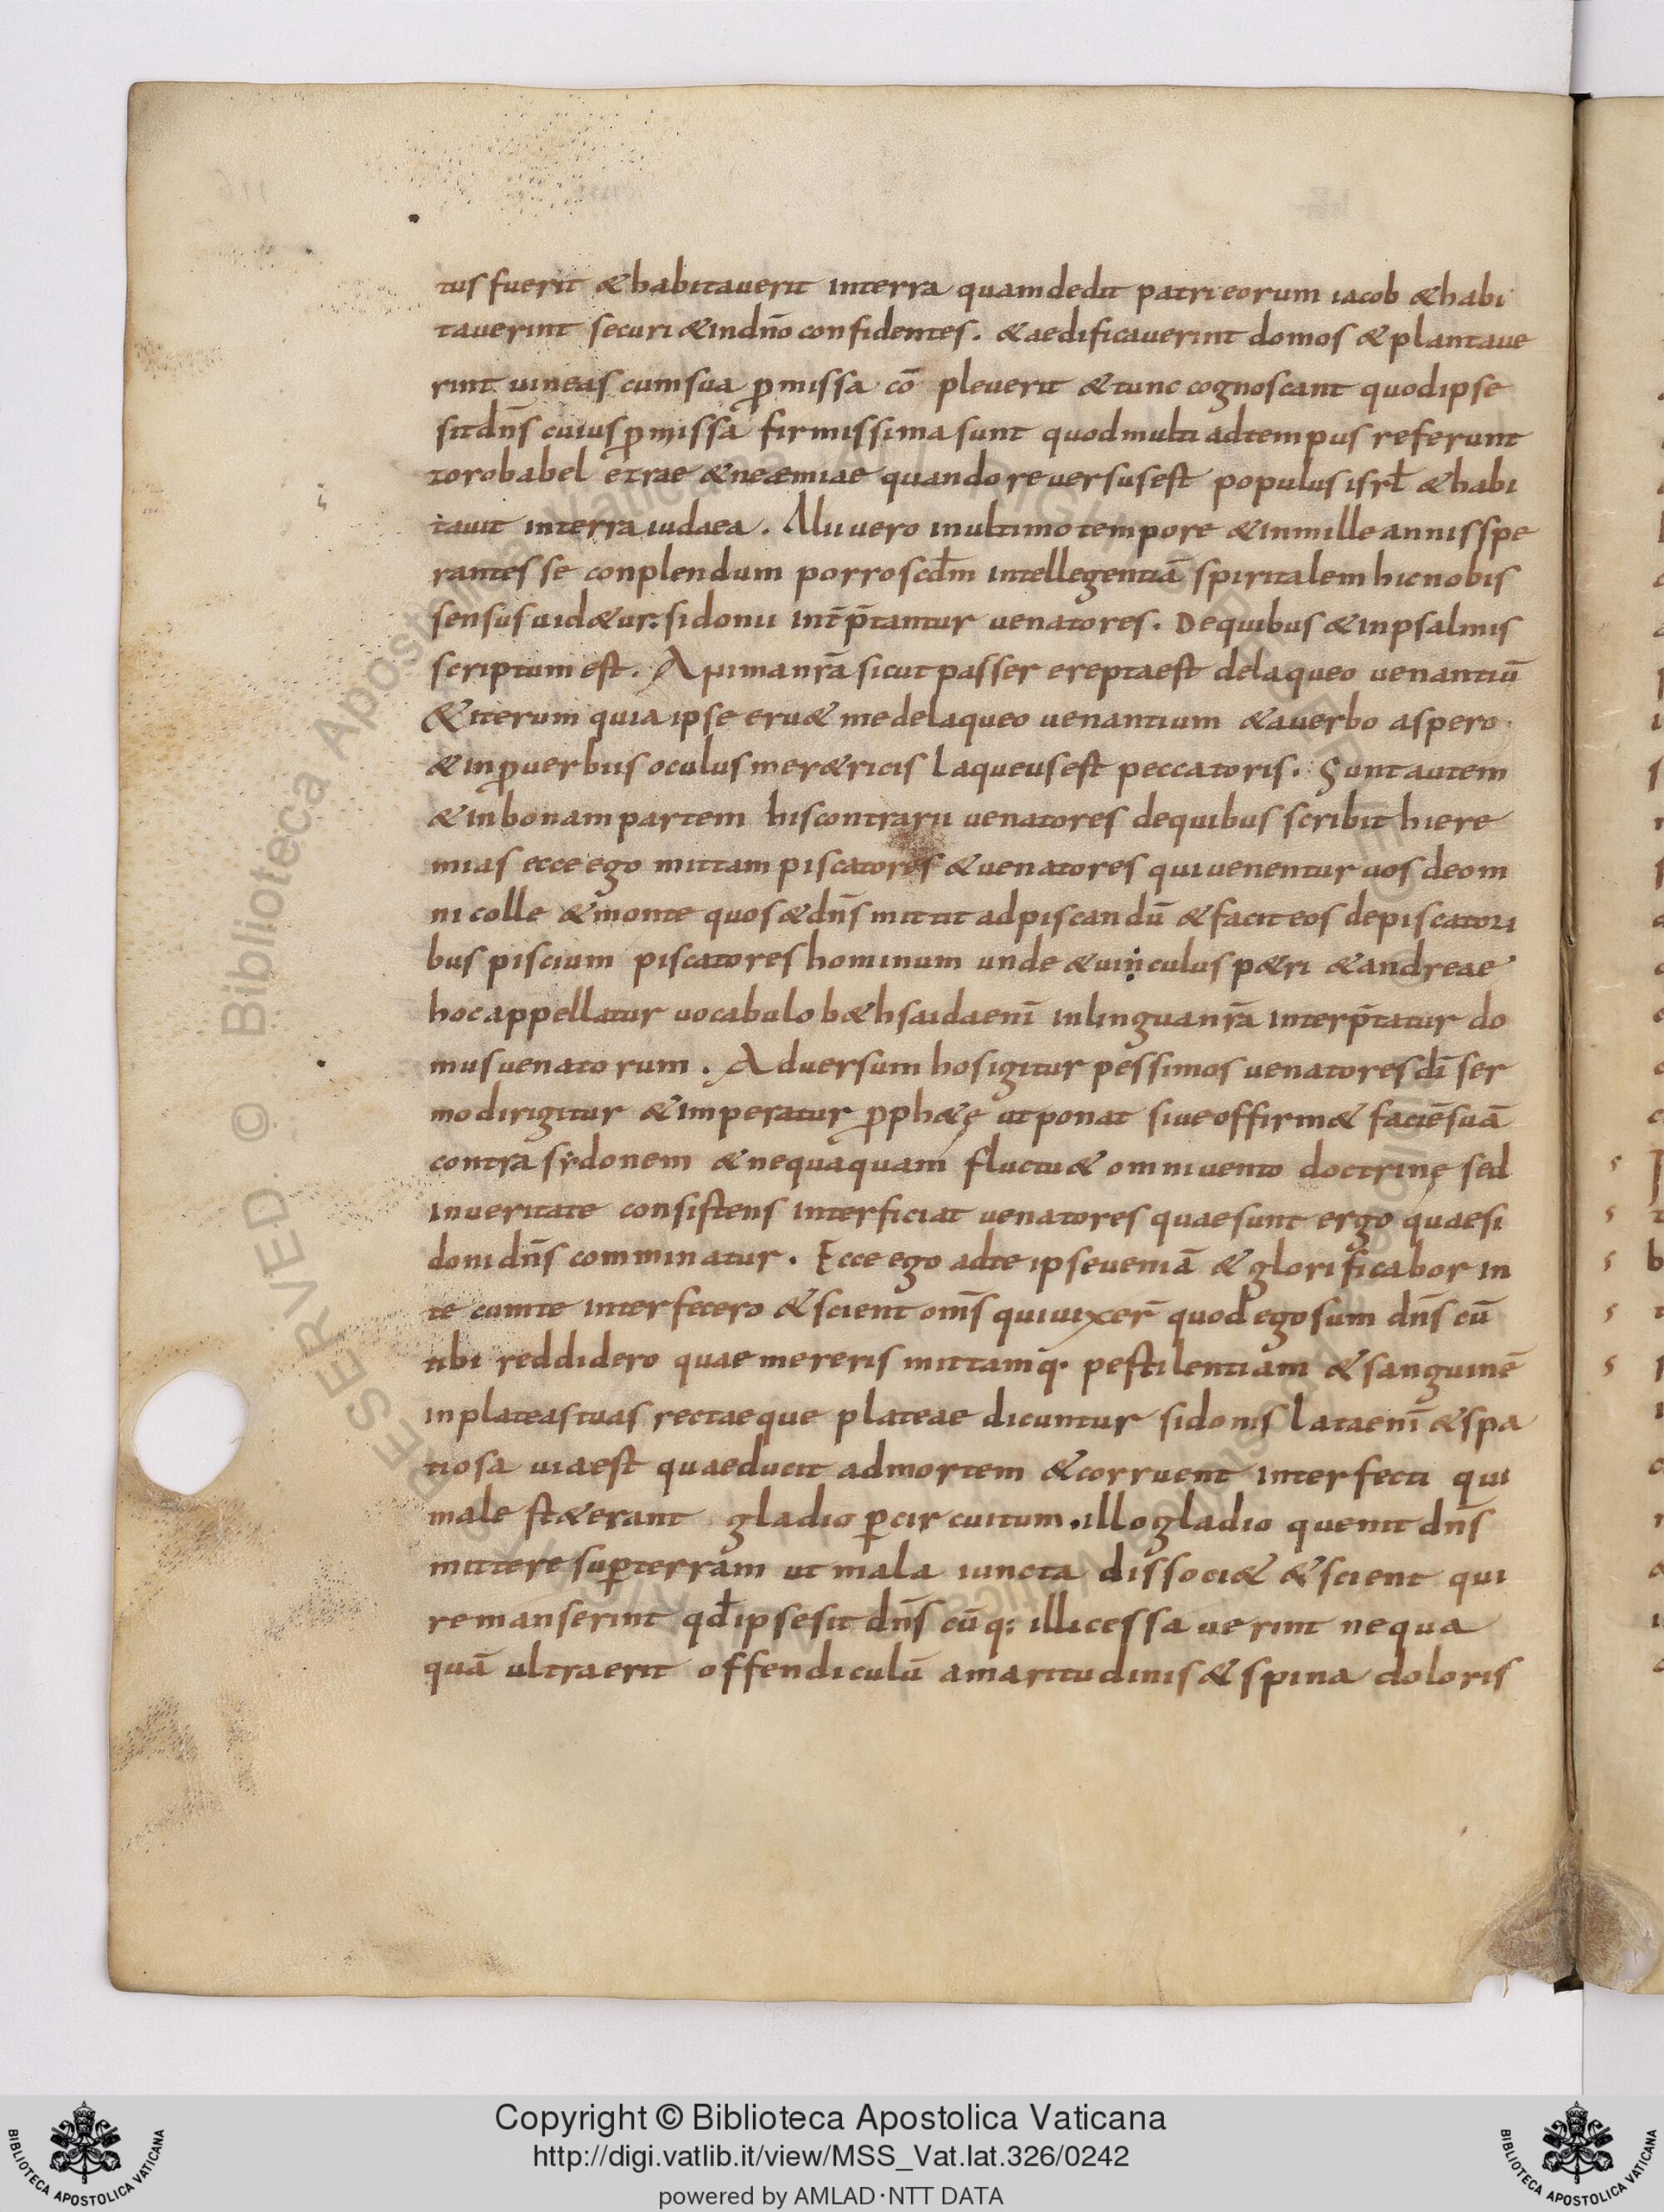 tus fuerit & habitauerit interra quamdedit patri eorum iacob & habi
tauerint securi & indn̄o confidentes. & aedificauerint domos & plantaue
rint uineas cumsua ꝓmissa cō pleuerit & tunc cognoscant quodipse
sitdn̄s cuiusꝓmissa firmissima sunt quodmulti adtempus referunt
zorobabel ezrae & neaemiae quando reuersusest populus isrł & habi
tauit interra iudaea. Alii uero inultimo tempore & inmille annisspe
rantes se conplendum porro scdm̄ intellegentiā spiritalem hicnobis
sensus uid&ur: sidonii int̄p̄tantur uenatores. Dequibus & inpsalmis
scriptum est. Animanr̄a sicut passer ereptaest delaqueo uenantiū
& iterum quia ipse eru& me delaqueo uenantium & auerbo aspero.
& inꝓuerbiis oculus mer&ricis laqueusest peccatoris. Suntautem
& inbonam partem hiscontrarii uenatores dequibus scribit hiere
mias ecceego mittam piscatores & uenatores qui uenentur uos deom
ni colle & monte quos & dn̄s mittit adpiscandū & facit eos depiscatori
bus piscium piscatores hominum unde & uinculus p&ri & andreae
hoc appellatur uocabulo b&hsaidaenī inlinguanr̄a interp̄tatur do
mus uenatorum. Aduersum hosigitur pessimos uenatores dī ser
mo dirigitur & imperatur ꝓph&ę ut ponat siue offirm& faciēsuā
contra sydonem & nequaquam fluctu& omni uento doctrinę sed
inueritate consistens interficiat uenatores quaesunt ergo quaesi
doni dn̄s comminatur. Ecce ego adte ipseueniā & glorificabor in
te cumte interfecero & scient om̄s qui uixer̄ quod ego sum dn̄s cū
tibi reddidero quae mereris mittamq· pestilentiam & sanguinē
inplateas tuas rectaeque plateae dicuntur sidonis lataenī & spa
tiosa uiaest quaeducit admortem & corruent interfecti qui
male st&erant gladio ꝑcircuitum. illo gladio quenit dn̄s
mittere suꝑterram ut mala iuncta dissoci& & scient qui
remanserint qđ ipsesit dn̄s cūq: illi cessauerint nequa
quā ultraerit offendiculū amaritudinis & spina doloris
Copyright © Biblioteca Apostolica Vaticana
http://digi.vatlib.it/view/MSS_Vat.lat.326/0242
powered by AMLAD·NTT DATA